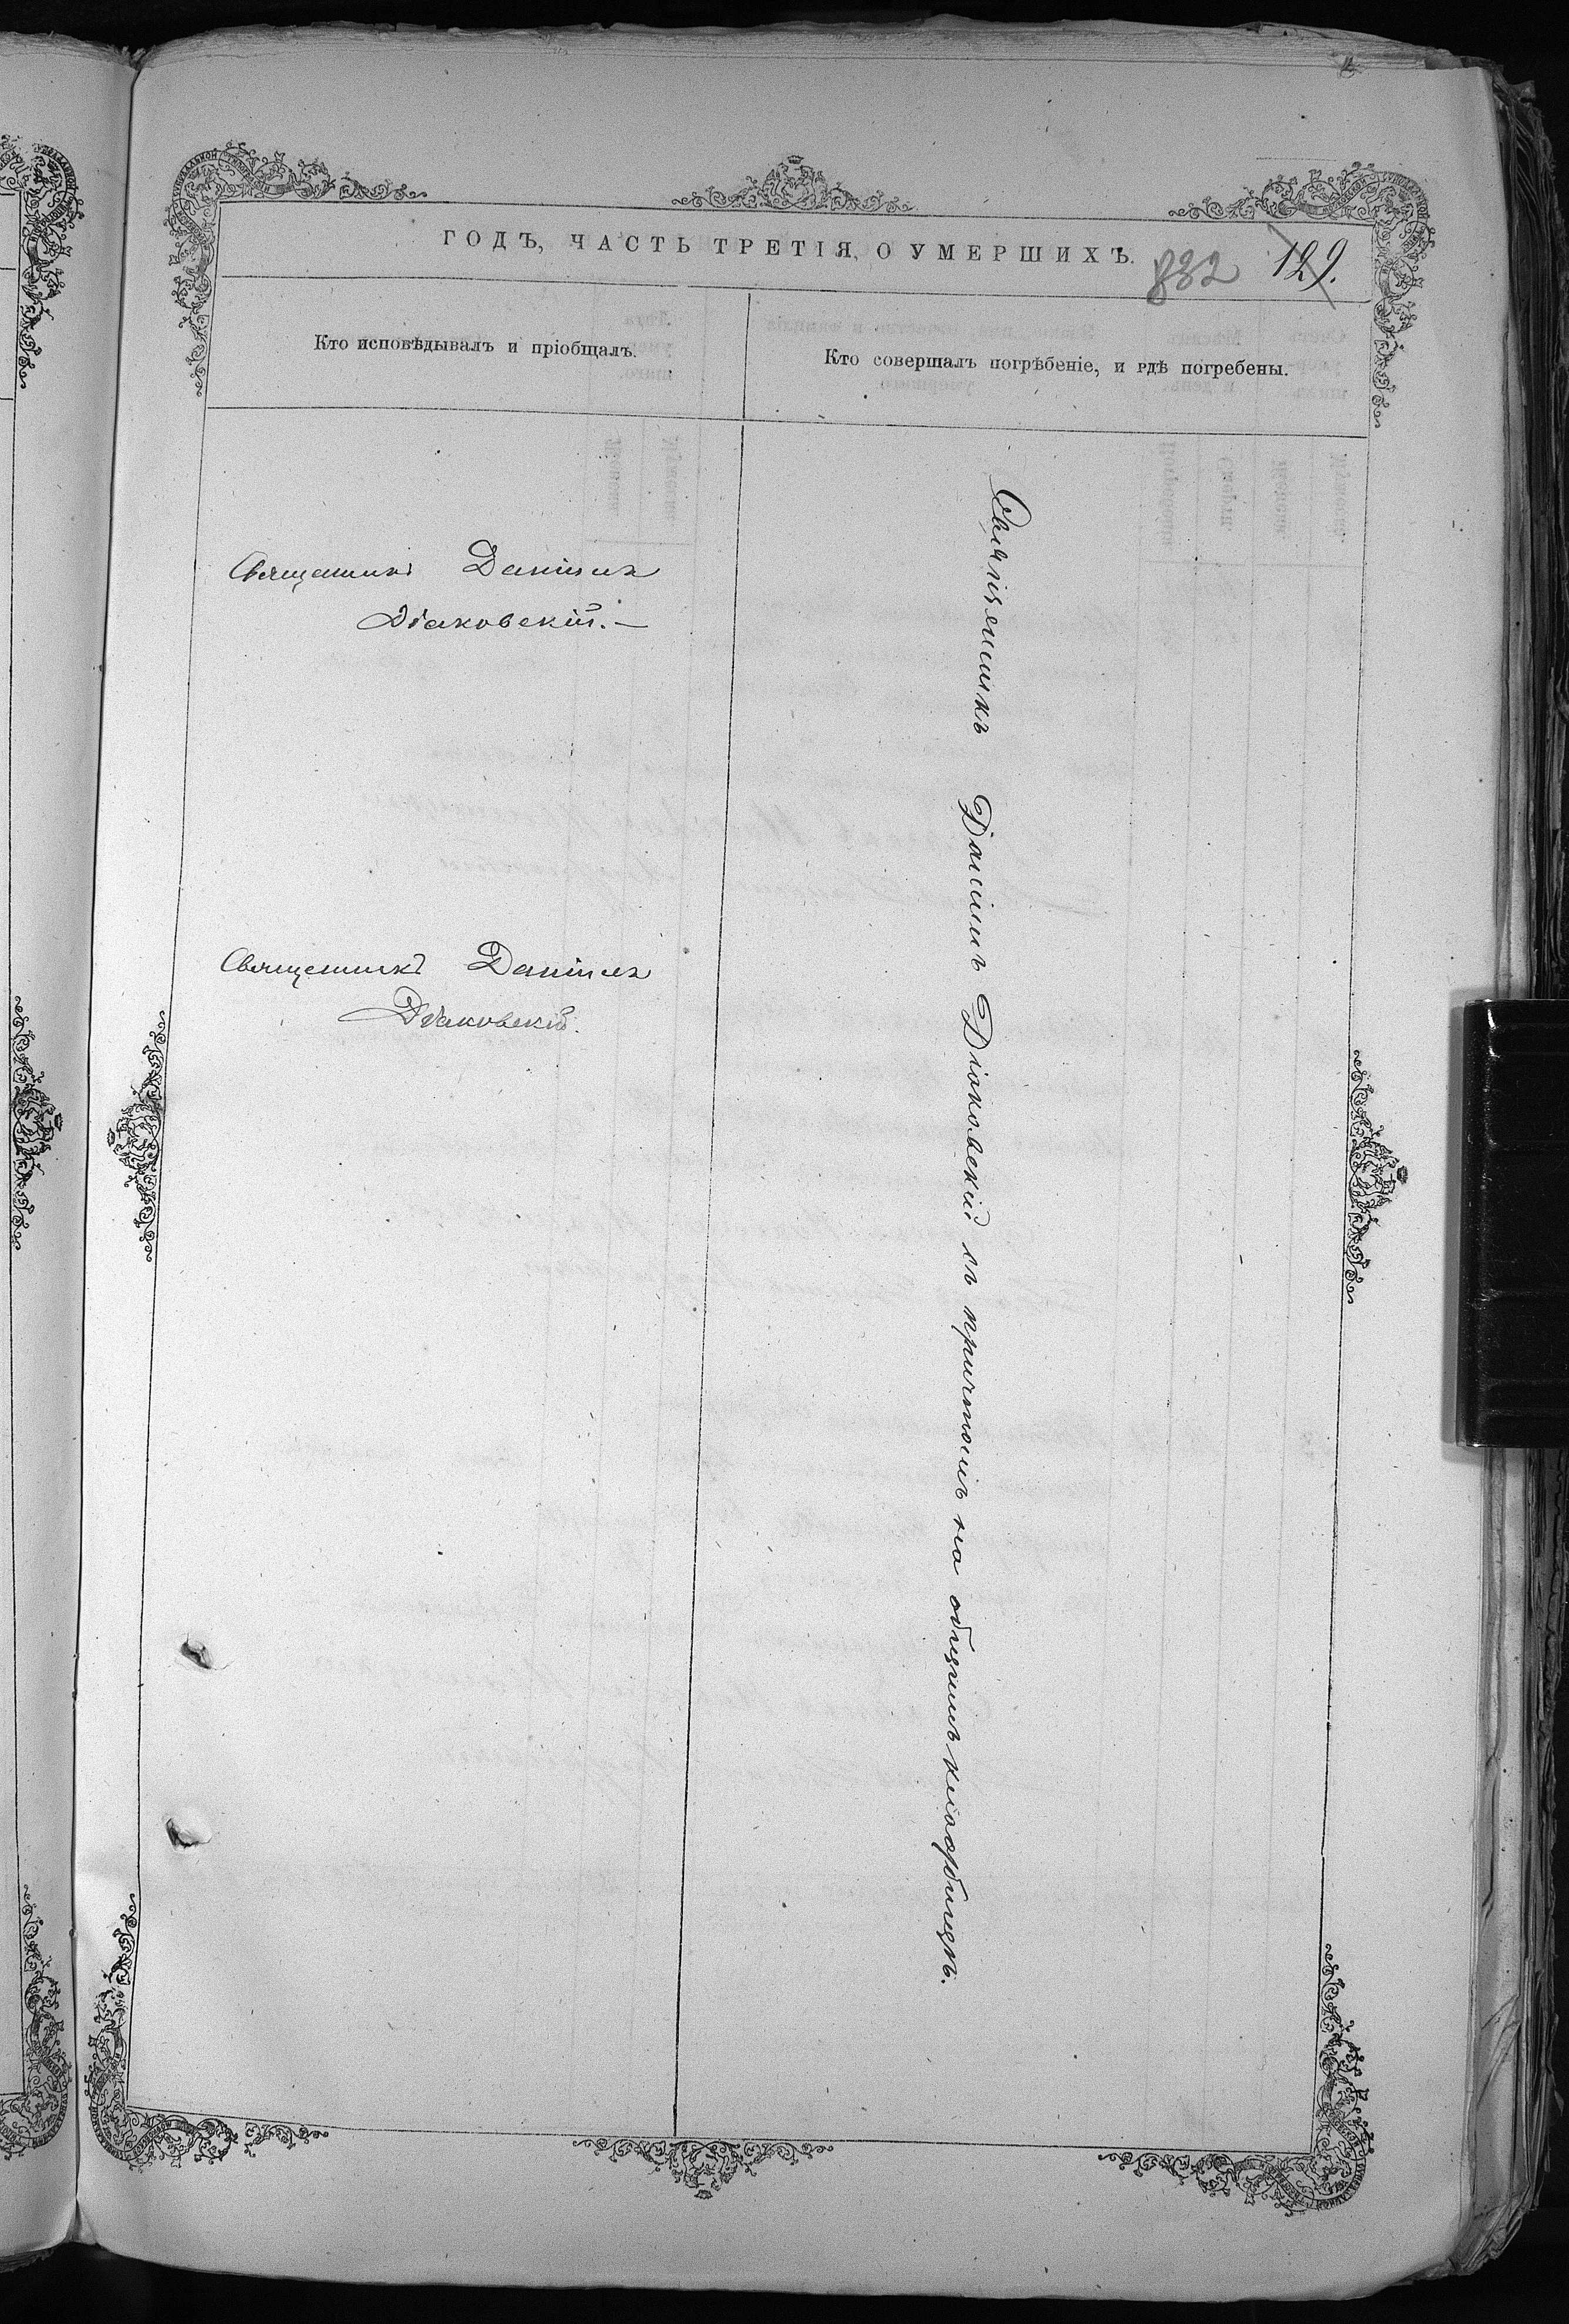 ГОДЪ, ЧАСТЬ ТРЕТІЯ, О УМЕРШИХЪ.
832 129.
Кто исповѣдывалъ и пріобщалъ.
Кто совершалъ погрѣбеніе, и гдѣ погребены.
Священникъ Даніилъ
Діаковскій.—
Священникъ Даніилъ
Діаковскій.
Священникъ Даніилъ Діаковскій съ причтомъ на общемъ кладбищѣ.